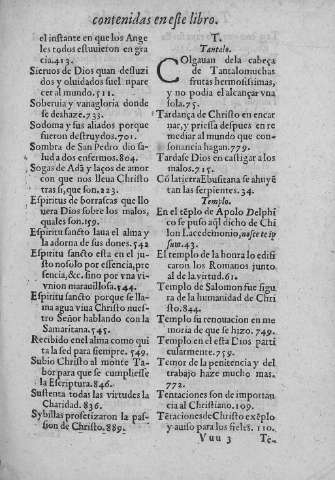 contenidas en este libro.
el instante en que los Ange
les todos estuuieron en gra
cia.413.
Sieruos de Dios quan desluzi
dos y oluidados suel in pare
cer al mundo.511.
Soberuia y vanagloria donde
se deshaze.733.
Sodoma y sus aliados porque
fueron destruydos.701.
Sombra de San Pedro dio sa-
lud a dos enfermos.804.
Sogas de Adã y laços de amor
con que nos lleua Christo
tras si, que son.223.
Espiritus de borrascas que llo
uera Dios sobre los malos,
quales son.159.
Espiritu sancto laua el alma y
la adorna de sus dones.542
Espiritu sancto esta en el ju-
sto no solo por essencia, pre
sencia, &c. sino por vna vi-
union marauillosa.544.
Espiritu sancto porque se lla-
ma agua viua Christo nues-
tro Señor hablando con la
Samaritana.545.
Recibido en el alma como qui
ta la sed para siempre. 549.
Subio Christo al monte Ta-
bor para que se cumpliesse
la Escriptura.846.
Sustenta todas las virtudes la
Charidad. 836.
Sybillas profetizaron la pas-
sion de Christo.889.
T.
Tantalo.
Colgauan dela cabeça
de Tantalo muchas
frutas hermosissimas,
y no podia el alcançar vna
sola.75.
Tardança de Christo en encar
nar, y priessa despues en re
mediar al mundo que con-
sonancia hagan.779.
Tardase Dios en castigar a los
malos.715.
Cõ la tierra Ebusitana se ahuyẽ
tan las serpientes. 34.
Templo.
En el tẽplo de Apolo Delphi
co se puso aql dicho de Chi
lon Lacedemonio, nosce te ip
sum.43.
El templo de la honra lo edifi
caron los Romanos junto
al de la virtud.61.
Templo de Salomon fue figu
ra de la humanidad de Chri
sto.844.
Templo su renouacion en me
moria de que se hizo. 749.
Templo en el esta Dios parti
cularmente. 759.
Temor de la penitencia y del
trabajo haze mucho mas.
772.
Tentaciones son de importan
cia al Christiano. 109.
Tẽtaciones de Christo exẽplo
y auiso para los fieles. 110.
Vuu 3
Te-